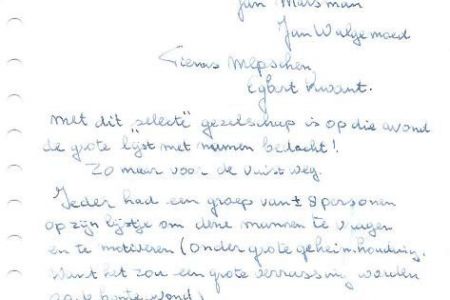 Jan Marsman
Jan Walgemoed
Mepschen,
Egbert Kwant.
Met dit "selecte" gezelschap is op die avond
de grote lijst met namen bedacht!.
Zo maar voor de vuist weg.
Ieder had een groep van ± 8 personen
op zijn lijstje om deze mannen te vragen
en te motiveren (onder grote geheimhouding.
Want het zou een grote verrassing worden
op de bonte avond)